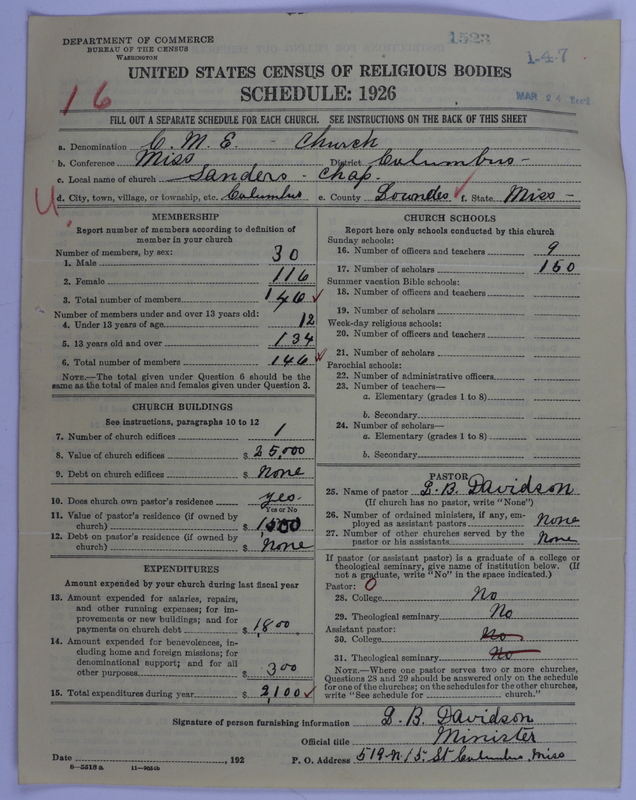 DEPARTMENT OF COMMERCE
BUREAU OF THE CENSUS
WASHINGTON
1523
1-47
MAR 24 Rec'd
16
UNITED STATES CENSUS OF RELIGIOUS BODIES
SCHEDULE: 1926
FILL OUT A SEPARATE SCHEDULE FOR EACH CHURCH. SEE INSTRUCTIONS ON THE BACK OF THIS SHEET
a. Denomination C. M. E. - Church
b. Conference Miss District Columbus -
c. Local name of church Sanders - Chap.
d. City, town, village, or township, etc. Columbus e. County Lowndes f. State Miss -
U
MEMBERSHIP
Report number of members according to definition of
member in your church
Number of members, by sex:
1. Male 30
2. Female 116
3. Total number of members 146
Number of members under and over 13 years old:
4. Under 13 years of age 12
5. 13 years old and over 134
6. Total number of members 146
NOTE.—The total given under Question 6 should be the
same as the total of males and females given under Question 3.
CHURCH BUILDINGS
See instructions, paragraphs 10 to 12
7. Number of church edifices 1
8. Value of church edifices $ 25,000
9. Debt on church edifices $ None
10. Does church own pastor's residence yes.
Yes or No
11. Value of pastor's residence (if owned by
church) $ 1500
12. Debt on pastor's residence (if owned by
church) $ None
EXPENDITURES
Amount expended by your church during last fiscal year
13. Amount expended for salaries, repairs,
and other running expenses; for im-
provements or new buildings; and for
payments on church debt $ 1800
14. Amount expended for benevolences, in-
cluding home and foreign missions; for
denominational support; and for all
other purposes $ 300
15. Total expenditures during year $ 2,100
CHURCH SCHOOLS
Report here only schools conducted by this church
Sunday schools:
16. Number of officers and teachers 9
17. Number of scholars 150
Summer vacation Bible schools:
18. Number of officers and teachers
19. Number of scholars
Week-day religious schools:
20. Number of officers and teachers
21. Number of scholars
Parochial schools:
22. Number of administrative officers
23. Number of teachers—
a. Elementary (grades 1 to 8)
b. Secondary
24. Number of scholars—
a. Elementary (grades 1 to 8)
b. Secondary
PASTOR
25. Name of pastor L. B. Davidson
(If church has no pastor, write "None")
26. Number of ordained ministers, if any, em-
ployed as assistant pastors None
27. Number of other churches served by the
pastor or his assistants None
If pastor (or assistant pastor) is a graduate of a college or
theological seminary, give name of institution below. (If
not a graduate, write "No" in the space indicated.)
Pastor: 0
28. College No
29. Theological seminary No
Assistant pastor:
30. College No
31. Theological seminary No
NOTE.—Where one pastor serves two or more churches,
Questions 28 and 29 should be answered only on the schedule
for one of the churches; on the schedules for the other churches,
write "See schedule for church."
Signature of person furnishing information L. B. Davidson
Official title Minister
Date , 192 P. O. Address 519-N. 15. St Columbus Miss
8—5516 a 11—9051b